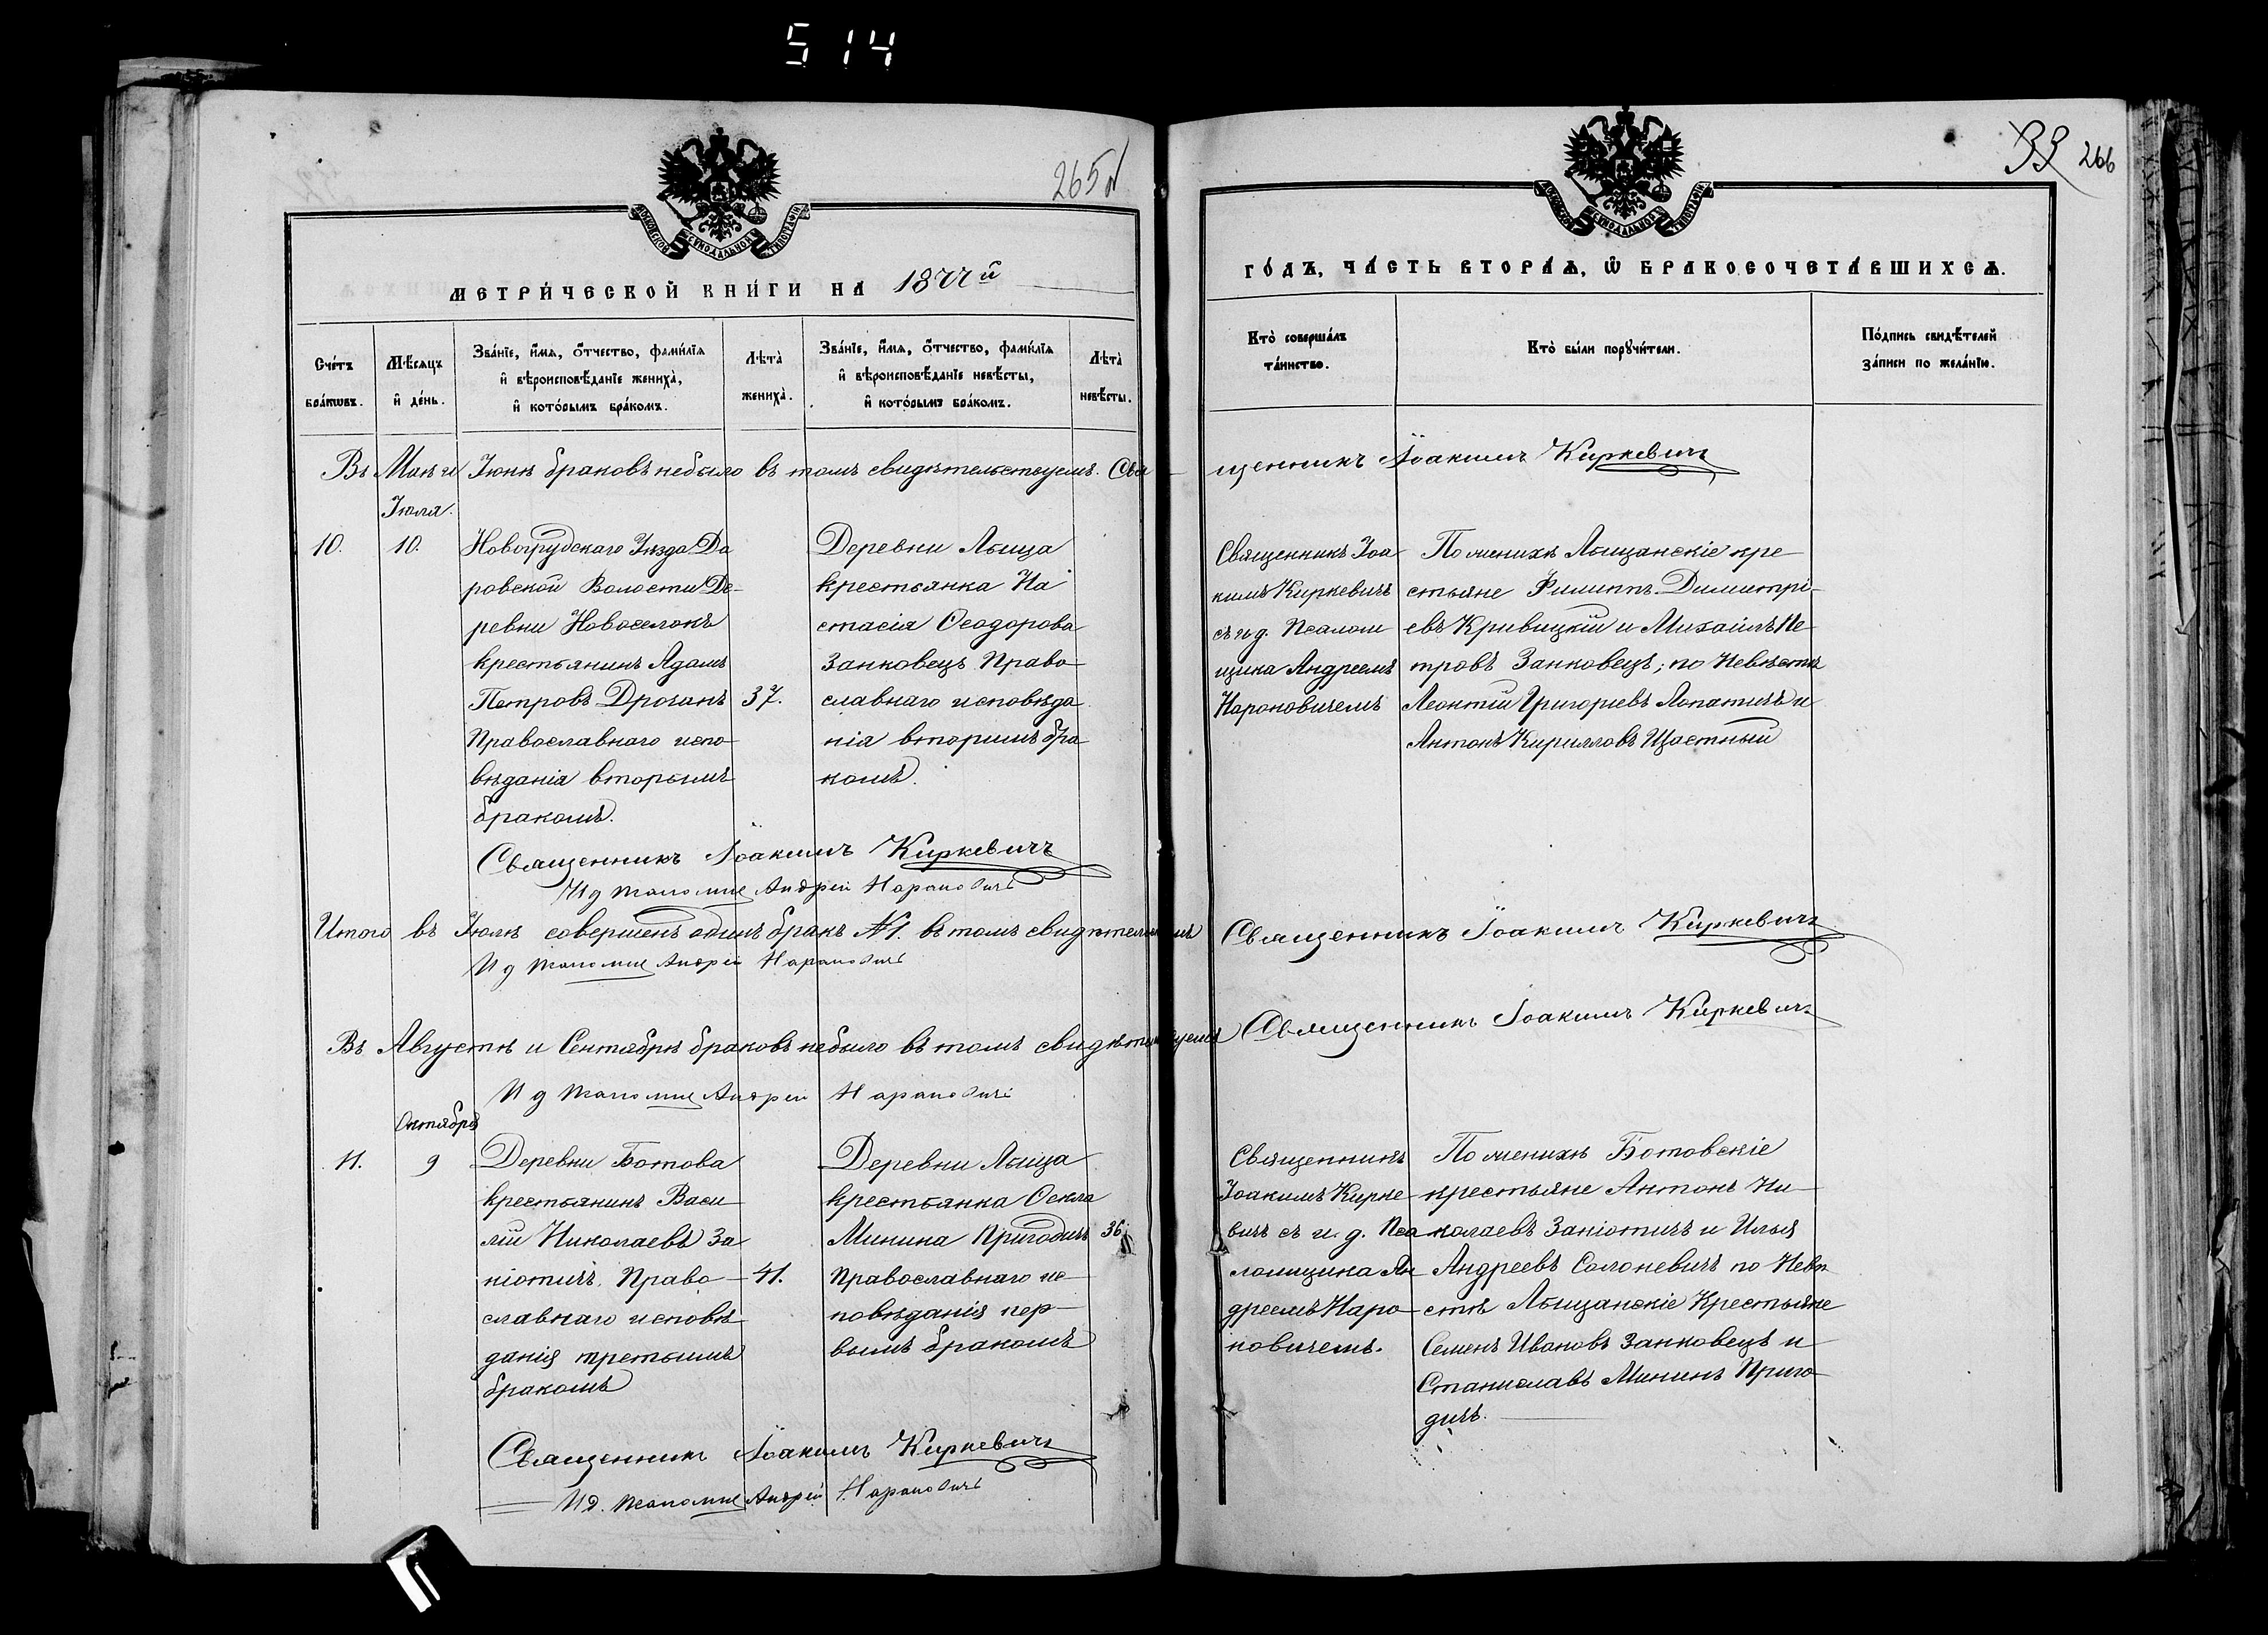 514
265
МОСКОВСКОЙ СѴНОДАЛЬНОЙ ТИПОГРАФІИ
МЕТРИ́ЧЕСКОЙ КНИ́ГИ НА 1877й
Сче́тъ бра́кѡвъ.
Мѣ́сяцъ и де́нь.
Зва́нїе, и́мѧ, о́тчество, фами́лїѧ и вѣроисповѣ́данїе жениха̀, и кото́рымъ бра́комъ.
Лѣта̀ жениха̀.
Зва́нїе, и́мѧ, о́тчество, фами́лїѧ и вѣроисповѣ́данїе невѣ́сты, и кото́рымъ бра́комъ.
Лѣта̀ невѣ́сты.
Въ Маѣ и Іюнѣ браковъ небыло въ томъ свидѣтельствуемъ. Свя
Іюля.
10.
10.
Новогрудскаго Уѣзда Да
ровской Волости Де-
ревни Новоселокъ
крестьянинъ Адамъ
Петровъ Дроганъ
Православнаго испо-
вѣданія вторымъ
бракомъ.
37.
Деревни Лыща
крестьянка На
стасія Ѳеодорова
Занковецъ Право-
славнаго исповѣда
нія вторымъ бра
комъ.
Священникъ Іоакимъ Киркевичъ
И д Псаломщ Андрей Нароновичъ
Итого въ Іюлѣ совершенъ одинъ бракъ №1. въ томъ свидѣтельствуемъ
И д Псаломщ Андрей Нароновичъ
Въ Августѣ и Сентябрѣ браковъ небыло въ томъ свидѣтельствуемъ
И д Псаломщ Андрей Нароновичъ
Октября
11.
9
Деревни Ботова
крестьянинъ Васи-
лій Николаевъ За
ніотичъ Право-
славнаго исповѣ
данія третьимъ
бракомъ
41.
Деревни Лыща
крестьянка Ѳекла
Минина Пригодичъ
Православнаго ис-
повѣданія пер-
вымъ бракомъ
36.
Священникъ Іоакимъ Киркевичъ
И д. Псаломщ Андрей Нароновичъ
33 266
МОСКОВСКОЙ СѴНОДАЛЬНОЙ ТИПОГРАФІИ
ГО́ДЪ, ЧА́СТЬ ВТОРА́Ѧ, Ѡ БРАКОСОЧЕТА́ВШИХСѦ.
Кто̀ соверша́лъ та́инство.
Кто̀ бы́ли порꙋчи́тели.
По́дпись свидѣ́телей за́писи по жела́нїю.
щенникъ Іоакимъ Киркевичъ
Священникъ Іоа
кимъ Киркевичъ
съ и д. Псалом
щика Андреемъ
Нароновичемъ
По женихѣ Лыщанскіе кре-
стьяне Филиппъ Димитрі-
евъ Кривицкій и Михаилъ Пе
тровъ Занковецъ; по Невѣстѣ
Леонтій Григорьевъ Лопатичъ и
Антонъ Кирилловъ Щастный
Священникъ Іоакимъ Киркевичъ
Священникъ Іоакимъ Киркевичъ
Священникъ
Іоакимъ Кирке-
вичъ съ и. д. Пса
ломщика Ан-
дреемъ Наро-
новичемъ.
По женихѣ Ботовскіе
крестьяне Антонъ Ни-
колаевъ Заніотичъ и Илья
Андреевъ Солоневичъ по Невѣ-
стѣ Лыщанскіе Крестьяне
Семенъ Ивановъ Занковецъ и
Станиславъ Мининъ Приго-
дичъ.